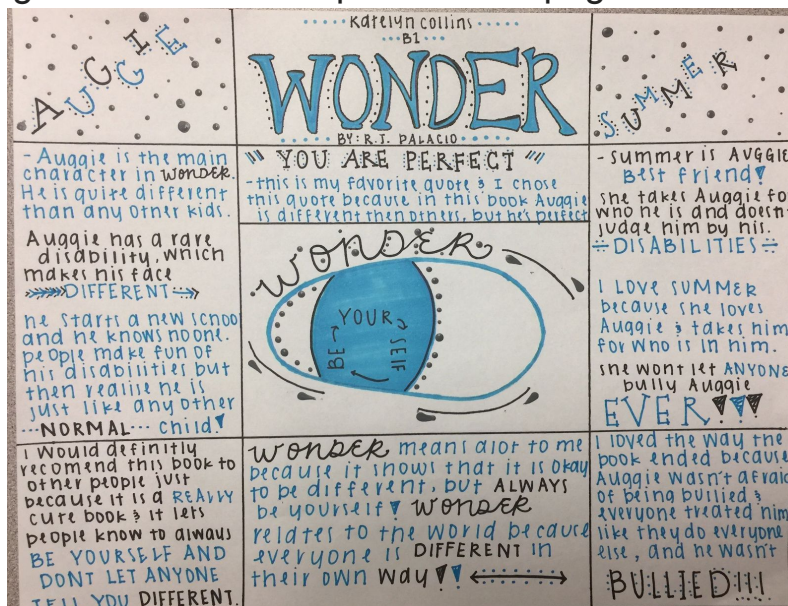 Katelyn Collins
B1
WONDER
BY: R.J. PALACIO
AUGGIE
- Auggie is the main
character in WONDER.
He is quite different
than any other kids.
Auggie has a rare
disability, which
makes his face
DIFFERENT
he starts a new schoo
and he knows noone.
people make fun of
his disabilities but
then realise he is
just like any other
NORMAL child!
"YOU ARE PERFECT"
- this is my favorite quote & I chose
this quote because in this book Auggie
is different then others, but he's perfect
WONDER
BE YOUR SELF
SUMMER
- Summer is AUGGIE
Best friend!
She takes Auggie for
who he is and doesn
judge him by his.
DISABILITIES
I LOVE SUMMER
because she loves
Auggie & takes him
for who is in him.
she wont let ANYONE
bully Auggie
EVER!!!
I Would definitly
recomend this book to
other people just
because it is a REALLY
cute book & it lets
people know to always
BE YOURSELF AND
DONT LET ANYONE
TELL YOU DIFFERENT.
WONDER means alot to me
because it shows that it is okay
to be different, but ALWAYS
be yourself! WONDER
relates to the world because
everyone is DIFFERENT in
their own way!!
I loved the way the
book ended because
Auggie wasn't afraid
of being bullied &
everyone treated him
like they do everyone
else, and he wasn't
BULLIED!!!